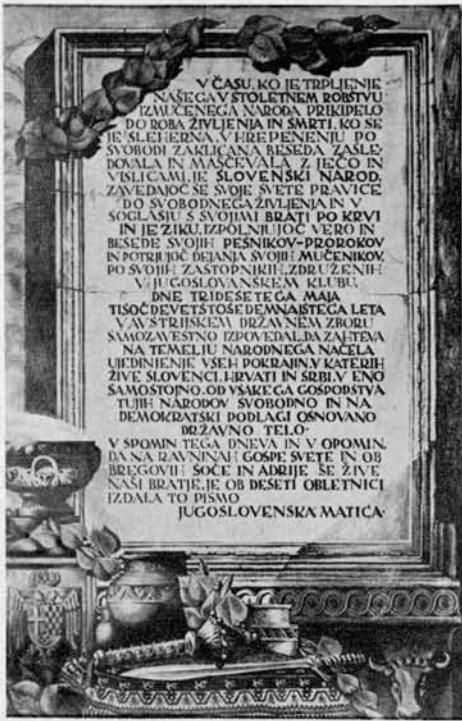 V ČASU, KO JE TRPLJENJE
NAŠEGA V STOLETNEM ROBSTVU
IZMUČENEGA NARODA PRIKIPELO
DO ROBA ŽIVLJENJA IN SMRTI, KO SE
JE SLEHERNA, V HREPENENJU PO
SVOBODI ZAKLICANA BESEDA ZASLE-
DOVALA IN MAŠČEVALA Z JEČO IN
VISLICAMI, JE SLOVENSKI NAROD,
ZAVEDAJOČ SE SVOJE SVETE PRAVICE
DO SVOBODNEGA ŽIVLJENJA IN V
SOGLASJU S SVOJIMI BRATI PO KRVI
IN JEZIKU, IZPOLNJUJOČ VERO IN
BESEDE SVOJIH PESNIKOV-PROROKOV
IN POTRJUJOČ DEJANJA SVOJIH MUČENIKOV,
PO SVOJIH ZASTOPNIKIH, ZDRUŽENIH
V JUGOSLOVANSKEM KLUBU,
DNE TRIDESETEGA MAJA
TISOČDEVETSTOSEDEMNAJSTEGA LETA
V AVSTRIJSKEM DRŽAVNEM ZBORU
SAMOZAVESTNO IZPOVEDAL, DA ZAHTEVA
NA TEMELJU NARODNEGA NAČELA
UJEDINJENJE VSEH POKRAJIN, V KATERIH
ŽIVE SLOVENCI, HRVATI IN SRBI, V ENO
SAMOSTOJNO, OD VSAKEGA GOSPODSTVA
TUJIH NARODOV SVOBODNO IN NA
DEMOKRATSKI PODLAGI OSNOVANO
DRŽAVNO TELO·
V SPOMIN TEGA DNEVA IN V OPOMIN,
DA NA RAVNINAH GOSPE SVETE IN OB
BREGOVIH SOČE IN ADRIJE ŠE ŽIVE
NAŠI BRATJE, JE OB DESETI OBLETNICI
IZDALA TO PISMO
JUGOSLOVENSKA MATICA·